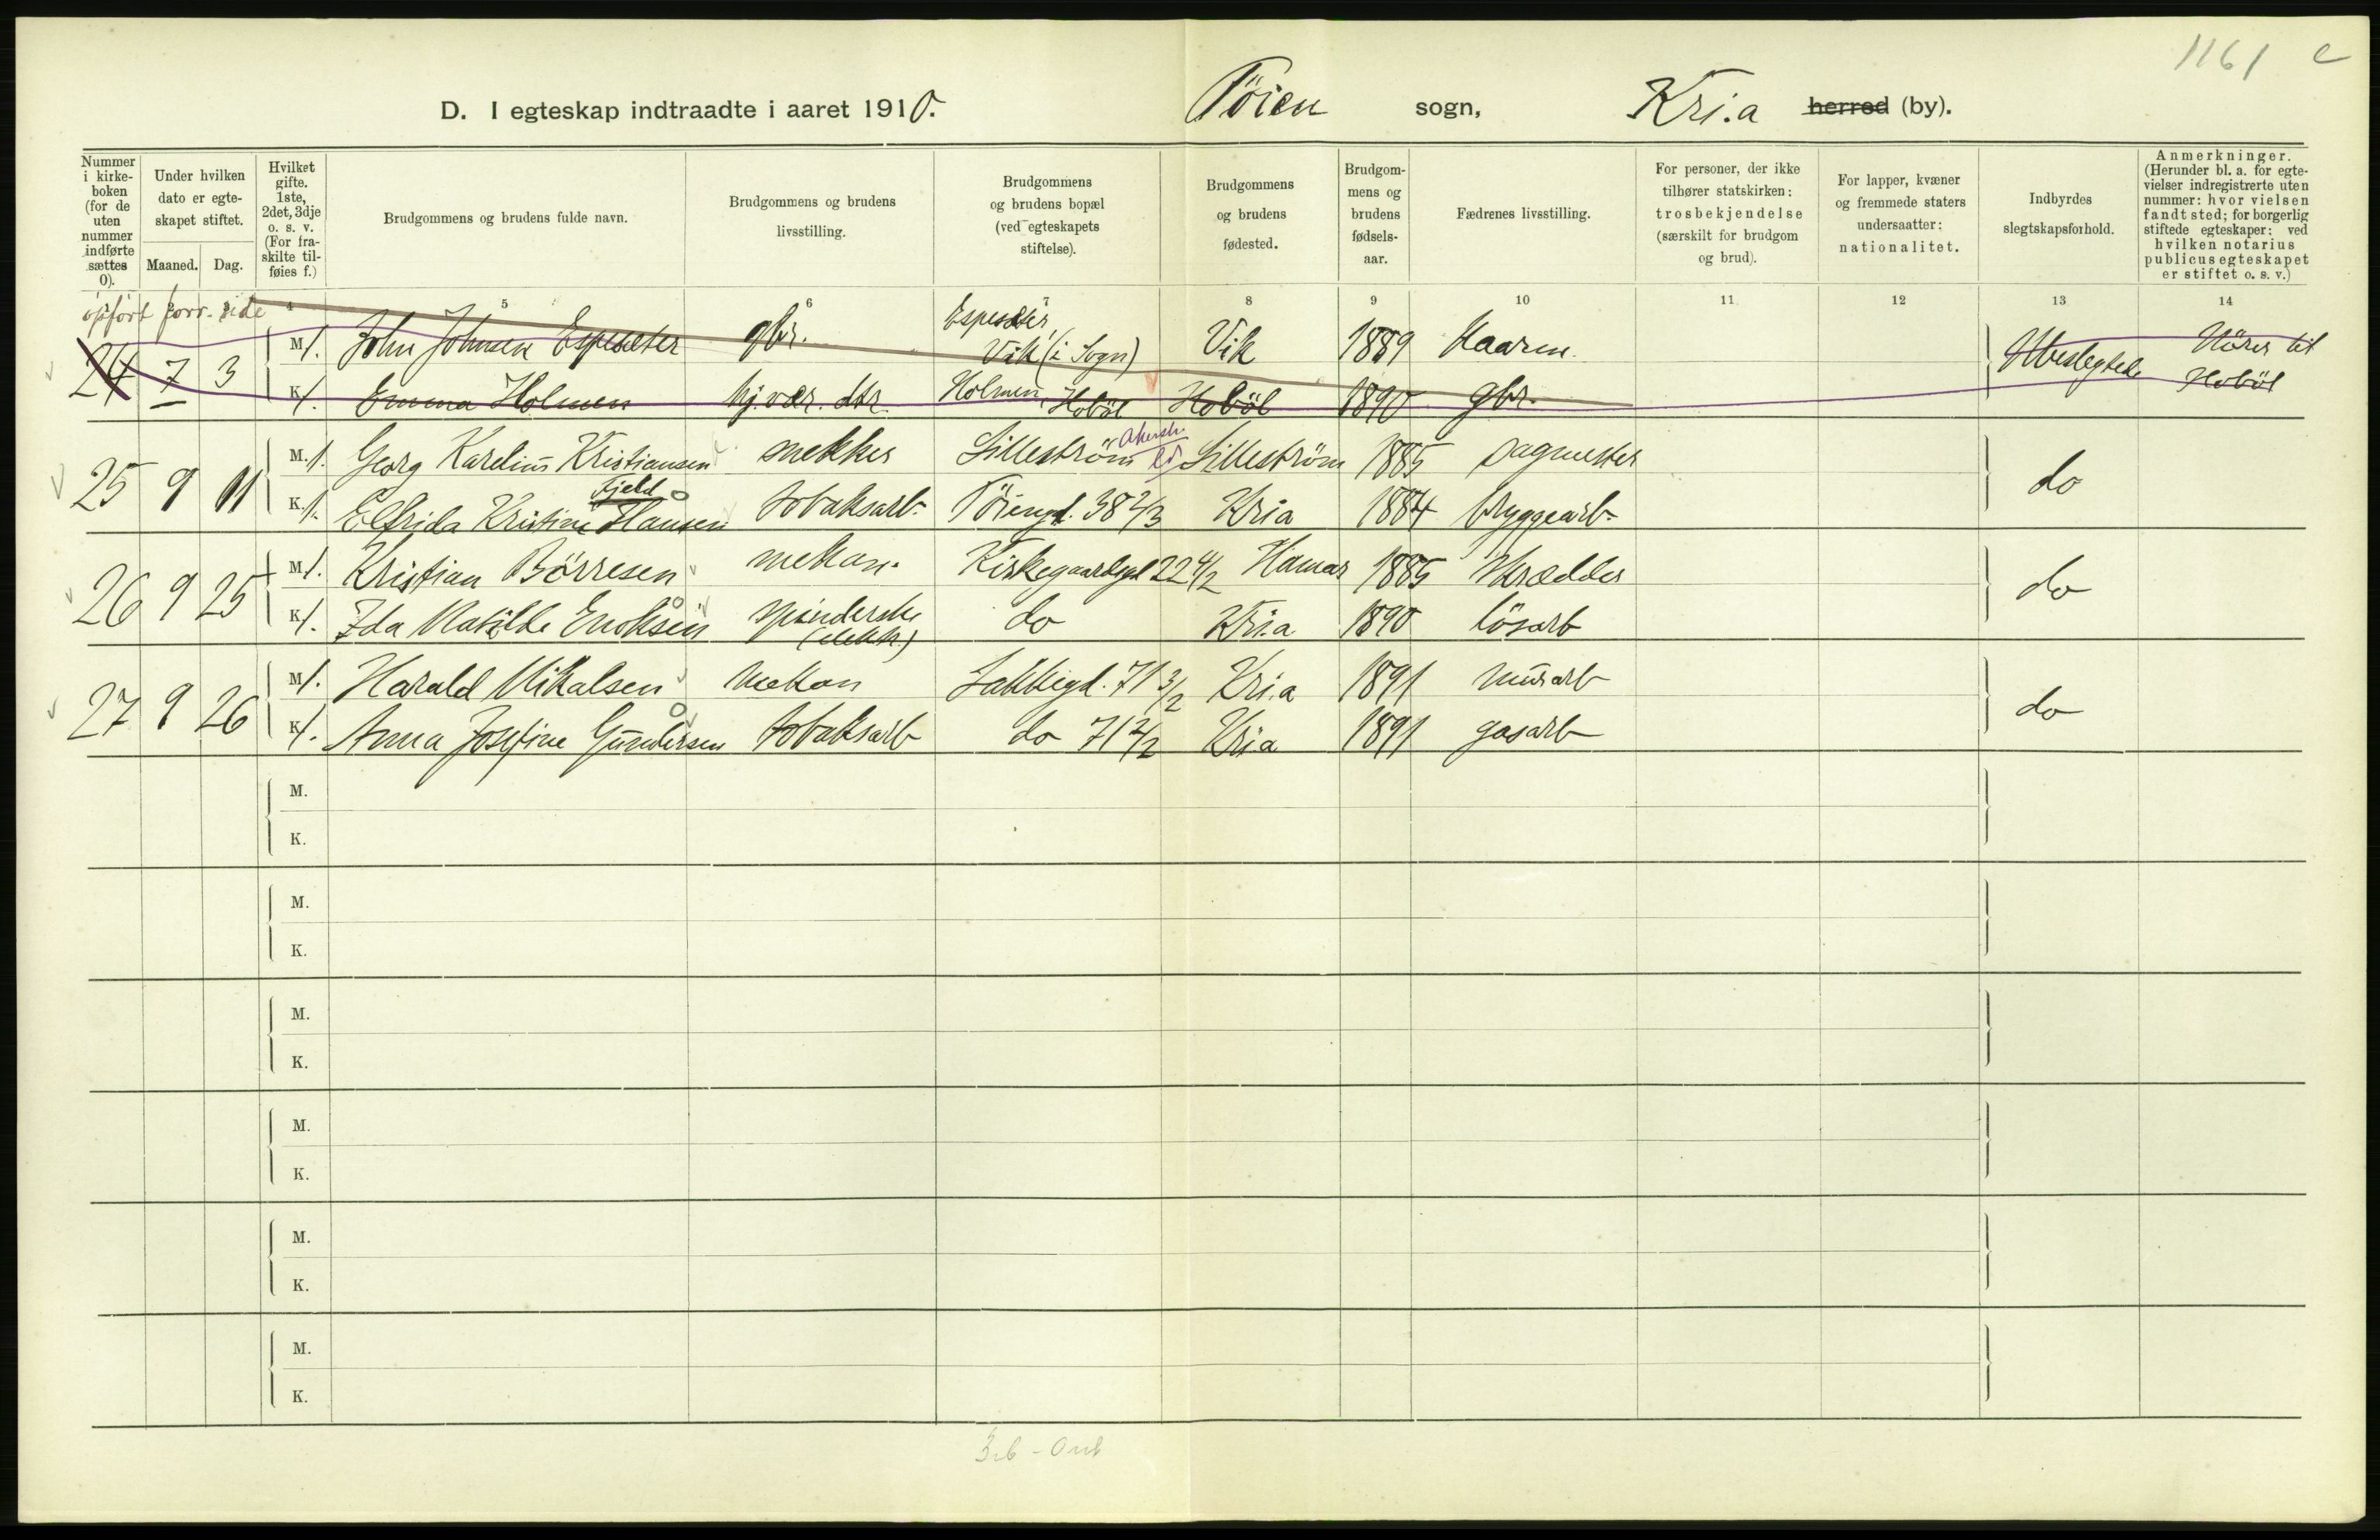 1161 c
D. I egteskap indtraadte i aaret 1910. Töien sogn, Kri.a herred (by).
Nummer i kirkeboken (for de uten nummer indførte sættes 0).
Under hvilken dato er egteskapet stiftet.
Maaned. Dag.
Hvilket gifte. 1ste, 2det, 3dje o. s. v. (For fraskilte tilføies f.)
Brudgommens og brudens fulde navn.
Brudgommens og brudens livsstilling.
Brudgommens og brudens bopæl (ved egteskapets stiftelse).
Brudgommens og brudens fødested.
Brudgommens og brudens fødselsaar.
Fædrenes livsstilling.
For personer, der ikke tilhører statskirken: trosbekjendelse (særskilt for brudgom og brud).
For lapper, kvæner og fremmede staters undersaatter: nationalitet.
Indbyrdes slegtskapsforhold.
Anmerkninger. (Herunder bl. a. for egtevielser indregistrerte uten nummer: hvor vielsen fandt sted; for borgerlig stiftede egteskaper: ved hvilken notarius publicus egteskapet er stiftet o. s. v.)
4 5 6 7 8 9 10 11 12 13 14
opført forr. side
24 7 3 M 1. John Johnsen Espesæter gbr. Espesæter, Vik (i Sogn) Vik 1889 Kaarm. Ubeslegtede Hörer til Hoböl
K 1. Emma Holmen hj.vær. dtr. Holmen, Hoböl Hoböl 1890 gbr.
25 9 11 M. 1. Georg Karelius Kristiansen snekker Lilleström Akersh. Lilleström 1885 sagmester do
K. 1. Elfrida Kristine Fjeld Hansen tobaksarb. Töiengt. 38 2/3 Kria 1884 bryggearb.
26 9 25 M 1. Kristian Börresen mekan. Kirkegaardsgt 22 4/2 Hamar 1885 skrædder do
K 1. Ida Matilde Enoksen spinderske do Kri.a 1890 lösarb
27 9 26 M 1. Harald Mikalsen mekan Lakkegt. 71 3/2 Kri.a 1891 murarb do
K 1. Anna Josefine Gundersen tobaksarb do 71 2/2 Kria 1891 gasarb
M.
K.
M.
K.
M.
K.
M.
K.
M.
K.
M.
K.